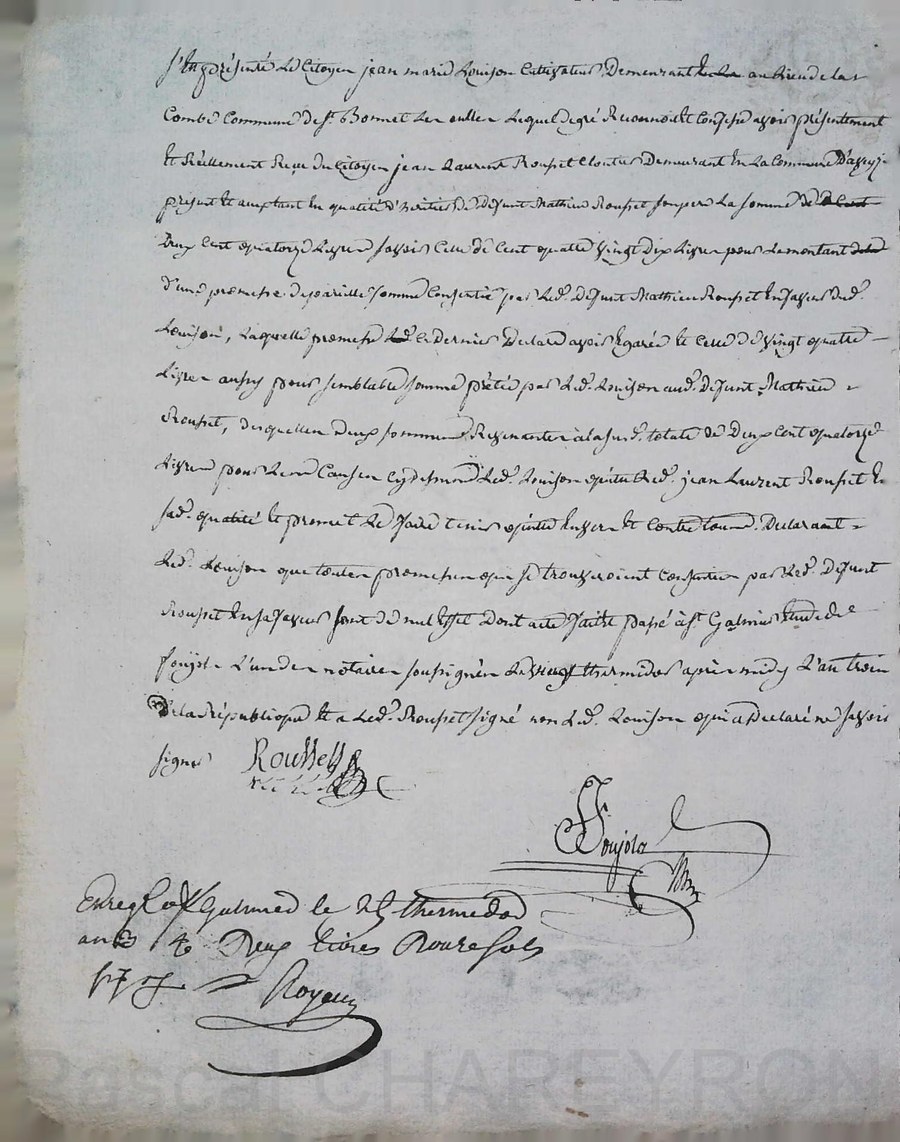 S'est présenté Le Citoyen jean marie Louison Cultivateur Demeurant au Lieu de la
Combe Commune de St. Bonnet Les oulles Lequel de gré Reconnoit et Confesse avoir présentement
Et Réellement Reçu du Citoyen jean Laurent Rousset Cloutier Demeurant En La Commune D'aveyzi
présent Et aceptant En qualité d'héritier De Défunt Mathieu Rousset son père La somme de
Deux Cent quatorze Livres savoir Celle de Cent quatre vingt Dix Livres pour Le montant
d'une promesse de pareille somme Consentie par Led. Défunt Mathieu Rousset En faveur dud.
Louison, Laquelle promesse Ce dernier Declare avoir Egarée Et Celle de vingt quatre
Livres aussy pour semblable somme prêtée par Led. Louison aud. Défunt Mathieu
Rousset, desquelles deux sommes Revenantes à la susd. totale de Deux Cent quatorze
Livres pour Les Causes cy dessus Led. Louison quitte Led. jean Laurent Rousset En
sad. qualité Et promet Le faire tenir quitte Envers Et Contre tous. Declarant
Led. Louison que toutes promesses qui se trouveroient Consenties par Led. Défunt
Rousset En sa faveur sont de nul Effet Dont acte fait et passé à St. Galmier Etude de
foujols L'un des notaires soussignés Le vingt thermidor après midy L'an trois
De la République Et a Led. Rousset signé non Led. Louison qui a Declaré ne savoir
signer Roussett
Foujols
Enreg. a St Galmier le 25 thermidor
an 3 Deux livres Douze sols
Royeur
Pascal CHAREYRON